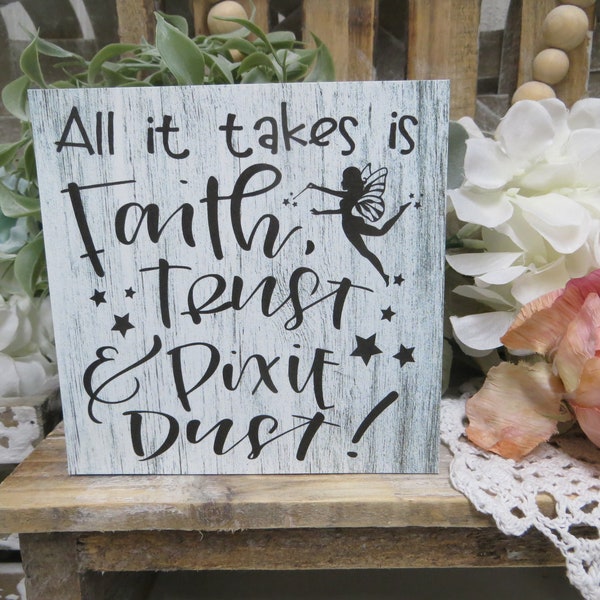 All it takes is
Faith,
Trust
& Pixie
Dust!